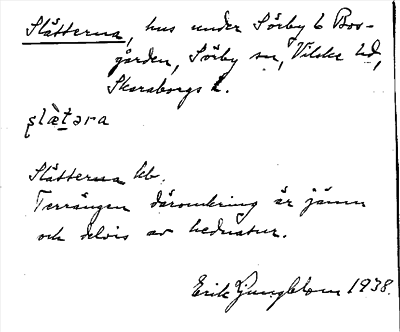 Slätterna, hus under Sörby 6 Bos-
gården, Sörby sn, Vilske hd,
Skaraborgs l.
slæ̀təra
Slätterna kb.
Terrängen däromkring är jämn
och delvis av hednatur.
Erik Ljungblom 1938.